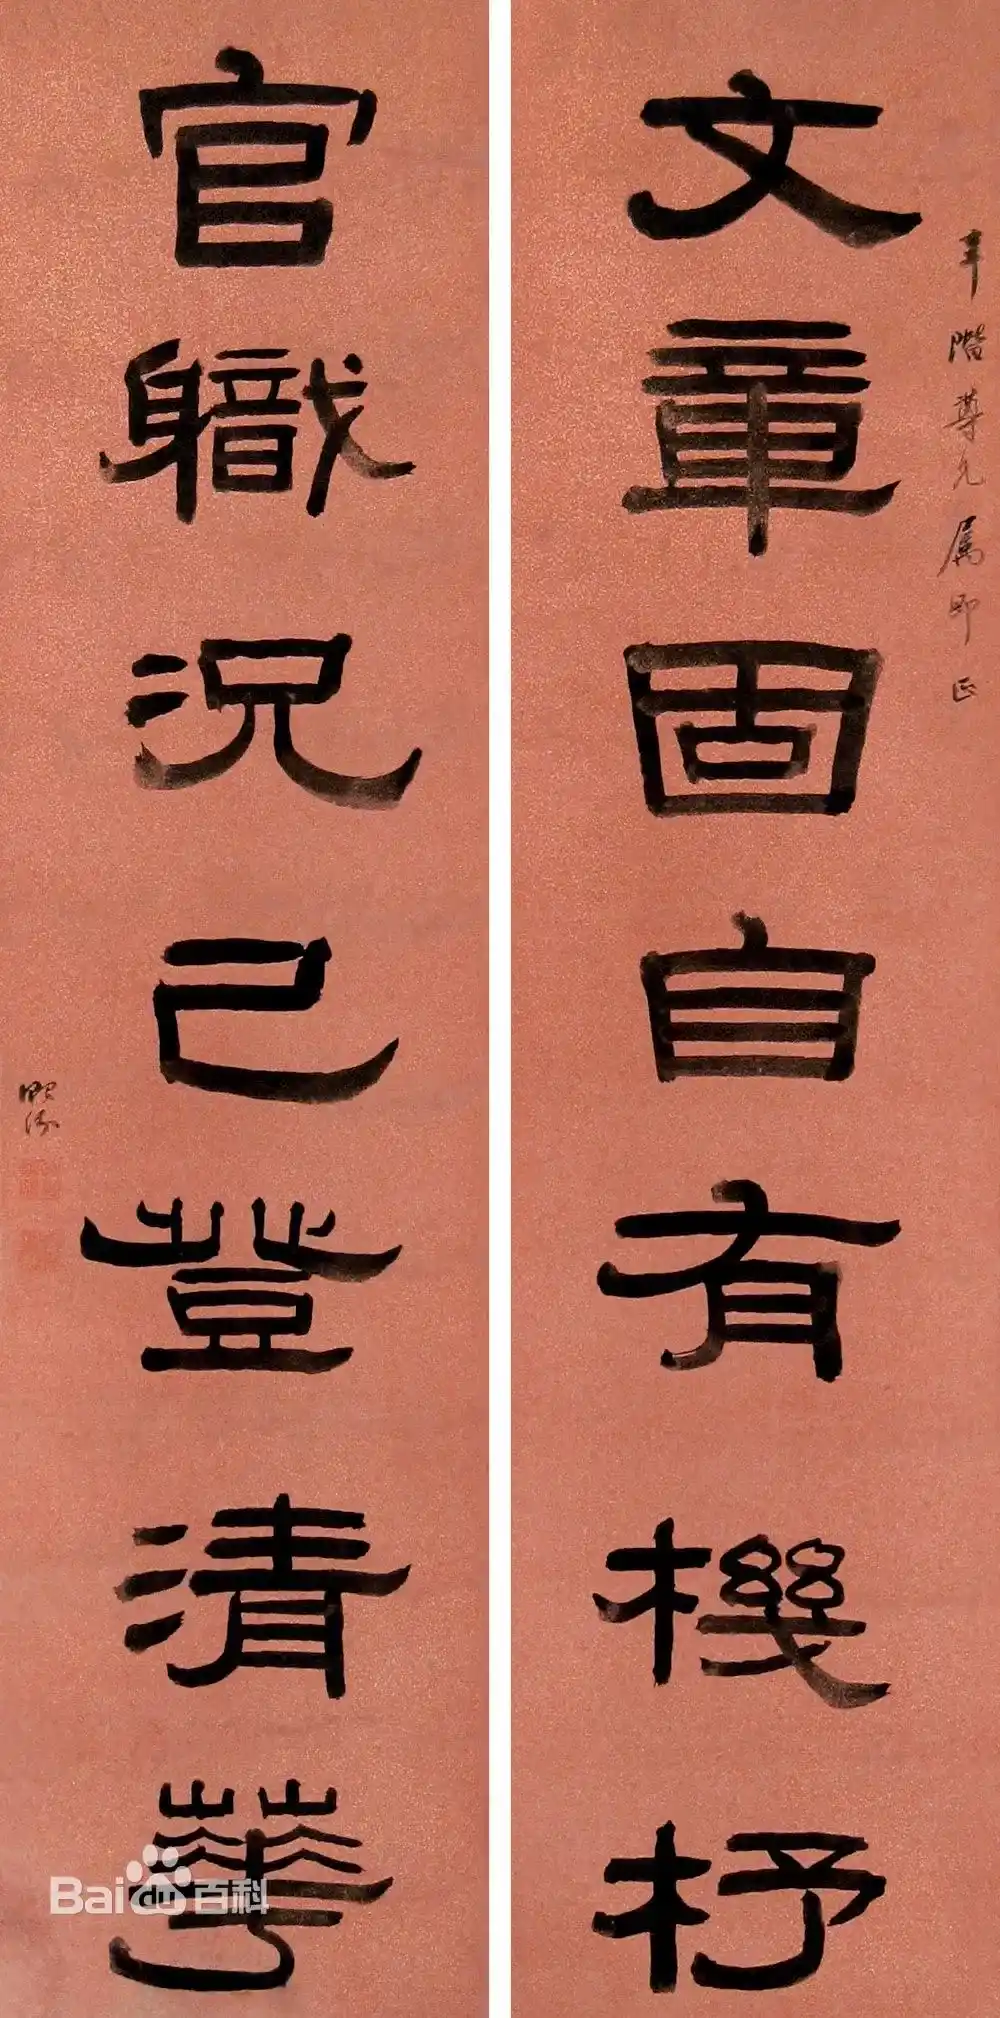 辛階尊兄属即正
文章固自有機杼
官職況已登清華
熙済
Baidu百科